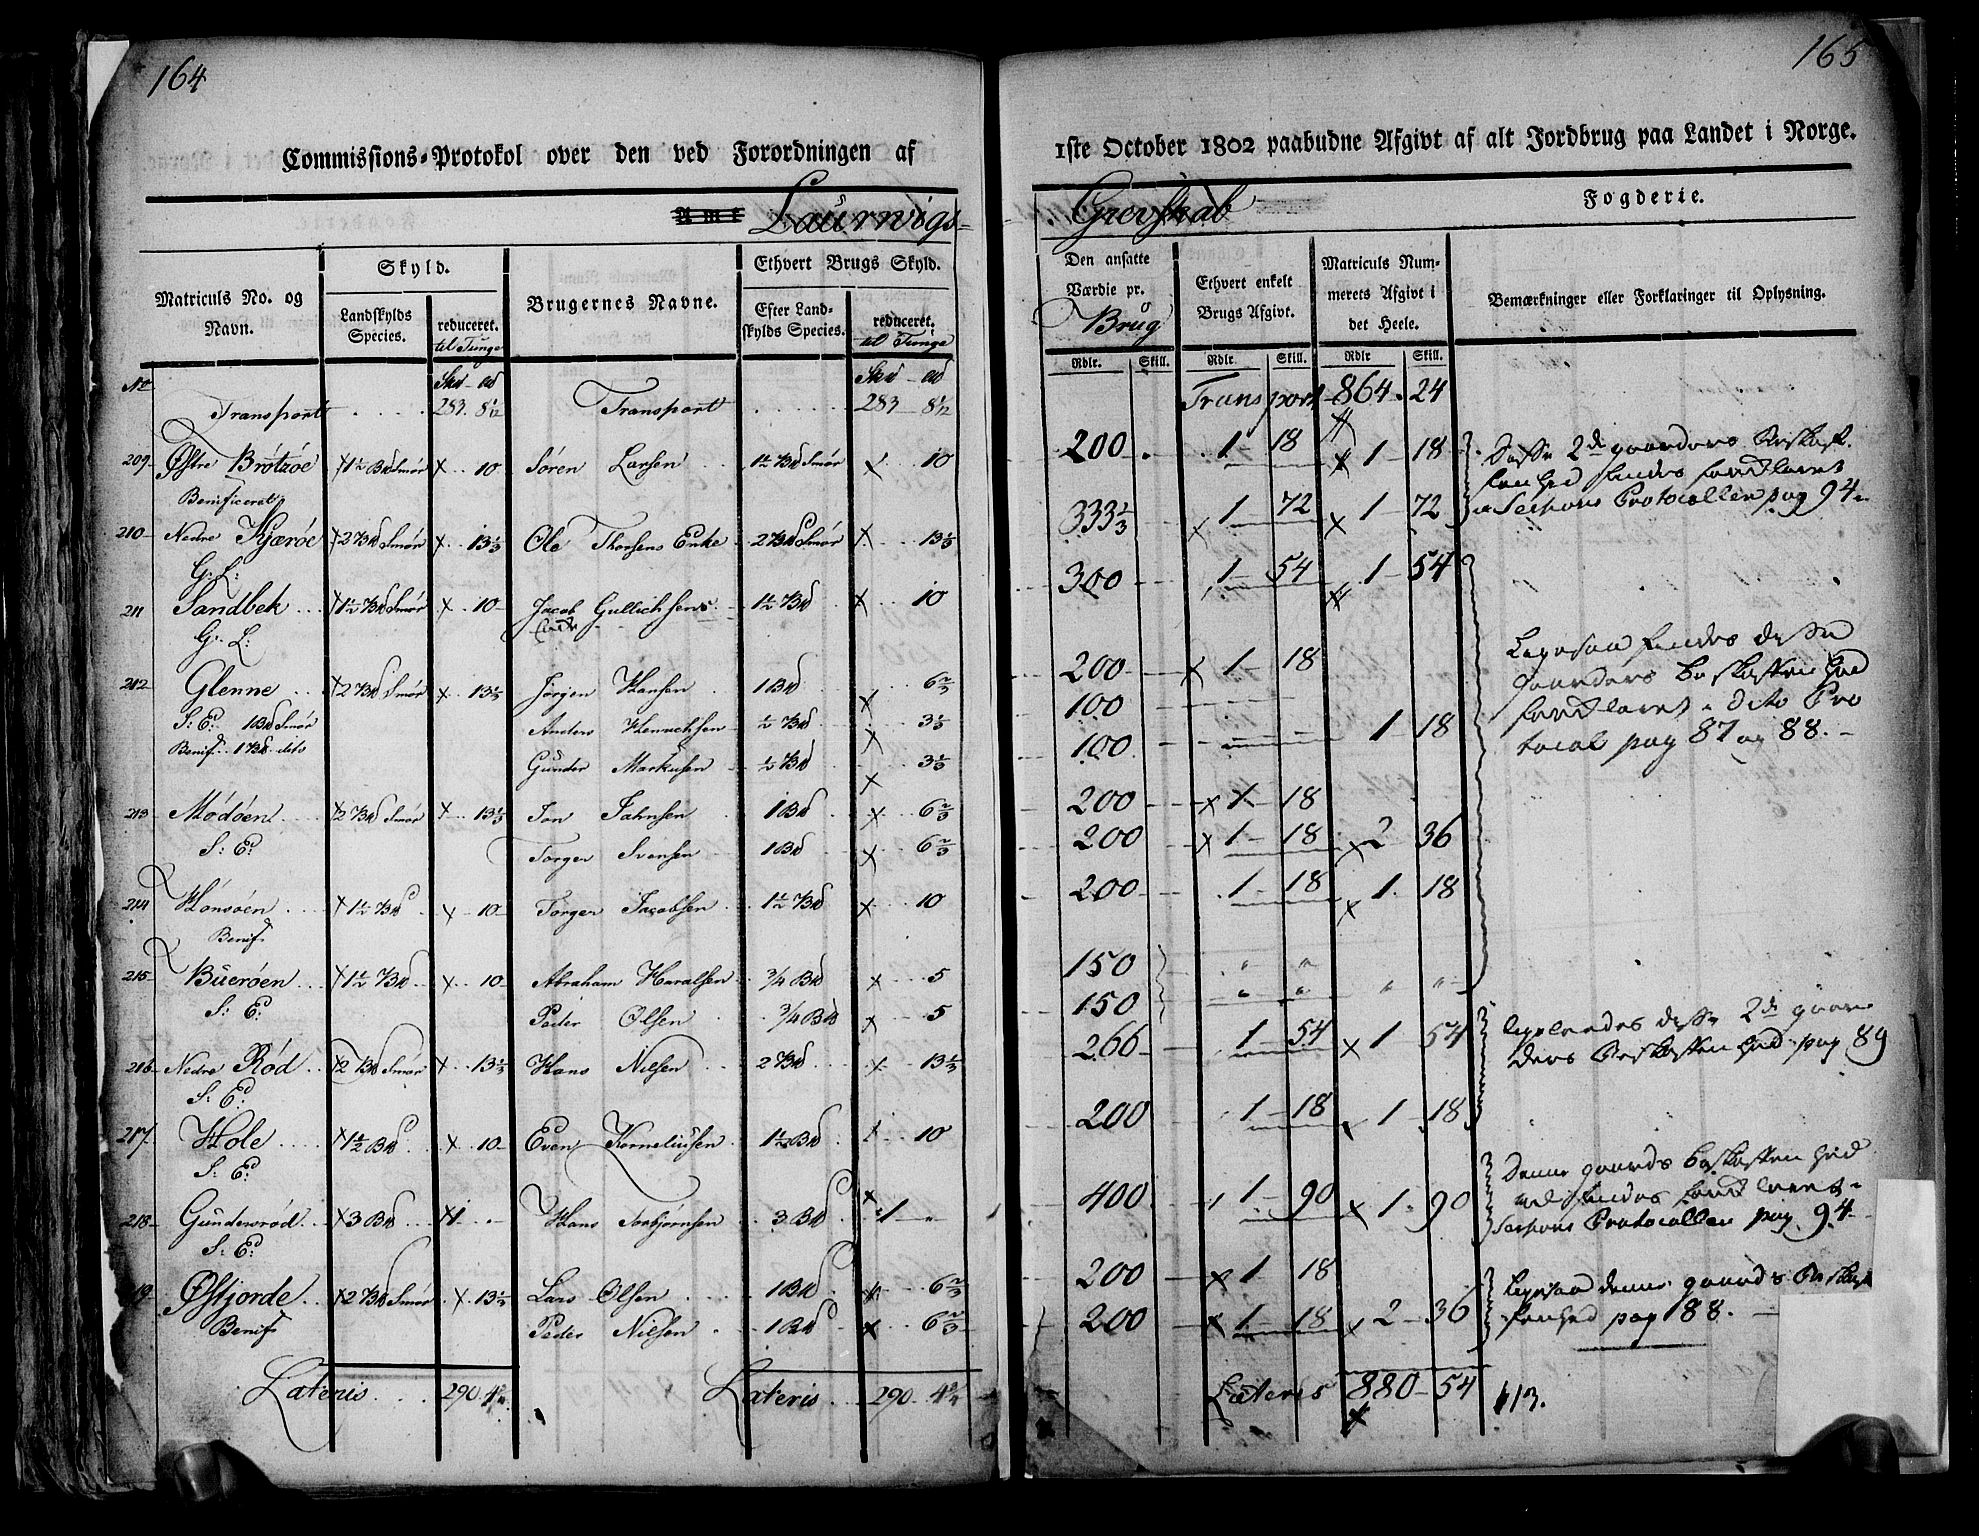 164
Commissions-Protokol over den ved Forordningen af
Amt Laurwigs-
Matriculs No. og Navn.
Skyld.
Landskylds Species.
reduceret. til Tunge
Brugernes Navne.
Ethvert Brugs Skyld.
Efter Landskylds Species.
reduceret. til Tunge
No
Transport 283. 8 1/12 Transport 283 8 1/12
209 Østre Brötzöe 1½ Bd Smör 10 Sören Larsen 1½ Bd Smör 10
Benificeret
210 Nedre Kjæröe 2 Bd Smör 13⅓ Ole Thorsens Enke 2 Bd Smör 13⅓
G. L:
211 Sandbek 1½ Bd Smör 10 Jacob Gullichsens 1½ Bd 10
G. L:
212 Glenne 2 Bd Smör 13⅓ Jörgen Hansen 1 Bd 6⅔
S: E: 1 Bd Smör Anders Hennechsen ½ Bd 3⅓
Benif. 1 Bd dito Gunder Markusen ½ Bd 3⅓
213 Mödöen 2 Bd Smör 13⅓ Jon Jahnsen 1 Bd 6⅔
S: E: Torger Svensen 1 Bd 6⅔
214 Hönsöen 1½ Bd 10 Torger Jacobsen 1½ Bd 10
Benif.
215 Büeröen 1½ Bd 10 Abraham Haralsen ¾ Bd 5
S: E: Peder Olsen ¾ Bd 5
216 Nedre Röd 2 Bd Smör 13⅓ Hans Nilsen 2 Bd 13⅓
S: E:
217 Hole 1½ Bd 10 Even Korneliusen 1½ Bd 10
S: E:
218 Gundersröd 3 Bd 1 Hans Torbjörnsen 3 Bd 1
S: E:
19 Østjorde 2 Bd Smör 13⅓ Lars Olsen 1 Bd 6⅔
Benif Peder Nilsen 1 Bd 6⅔
Lateris 290 Lateris 290
165
1ste October 1802 paabudne Afgivt af alt Jordbrug paa Landet i Norge.
Grevskab Fogderie.
Den ansatte Værdie pr. Brug
Ethvert enkelt Brugs Afgivt.
Matriculs Nummerets Afgivt i det Heele.
Bemærkninger eller Forklaringer til Oplysning.
Rdlr. Skill. Rdlr. Skill. Rdlr Skill.
Transport 864. 24
200 1 18 1 18 Disse 2de gaarders Beskaf-
fenhed findes forklaret
333⅓ 1 72 1 72 i Sessions Protocollen pag 94
300 1 54 1 54
200 1 18 Ligesaa findes disse
100 gaarders Beskaffenhed
100 1 18 forklaret i dito Pro
tocol pag 87 og 88.
200 1 18
200 1 18 2 36
200 1 18 1 18
150 " " " "
150 " "
266 1 54 1 54 ligeledes disse 2de gaar
ders Beskaffenhed pag 89
200 1 18 1 18
Denne gaards Beskaffenhed
400 1 90 1 90 findes forklaret i
Sessions Protocollen pag. 94
200 1 18 Ligesaa denne gaards Beskaf
200 1 18 2 36 fenhed pag 188.
Lateris 880 54 113.